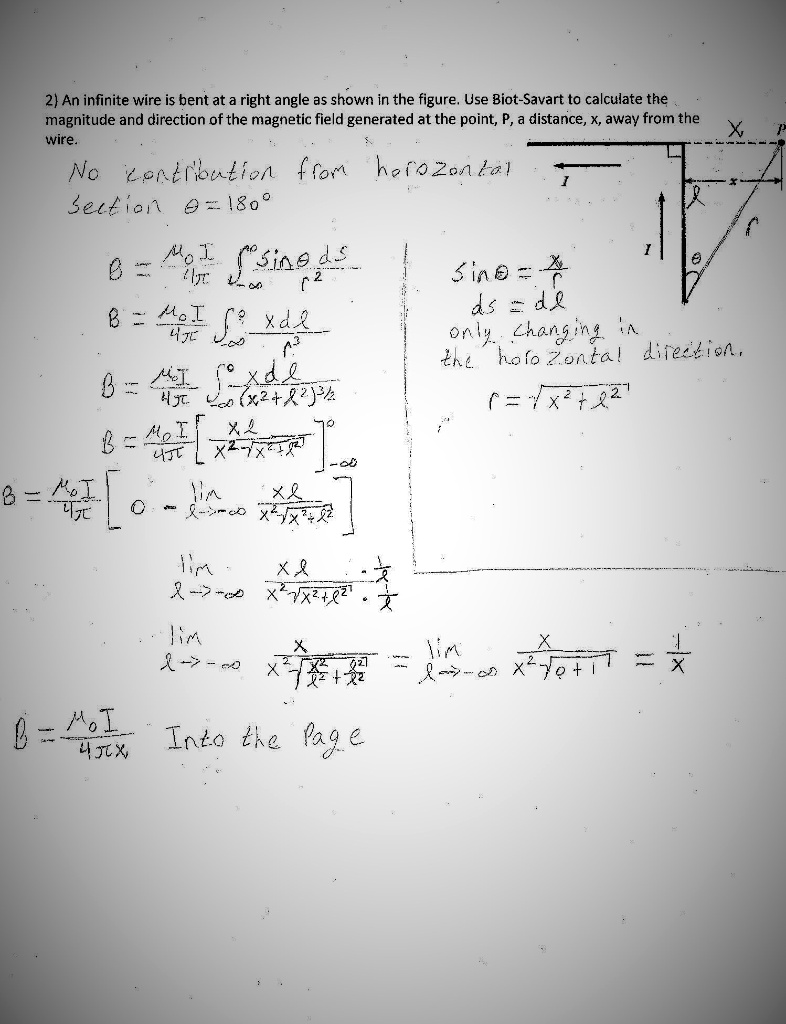 2) An infinite wire is bent at a right angle as shown in the figure. Use Biot-Savart to calculate the
magnitude and direction of the magnetic field generated at the point, P, a distance, x, away from the
wire.
X P
No contribution from horozontal
section θ = 180°
I
x
l
r
I
θ
B = μ₀I/4π ∫_{-∞}^{0} sinθ ds / r²
B = μ₀I/4π ∫_{-∞}^{0} x dl / r³
B = μ₀I/4π ∫_{-∞}^{0} x dl / (x²+l²)^{3/2}
B = μ₀I/4π [ x l / x²√(x²+l²) ]_{-∞}^{0}
sinθ = x/r
ds = dl
only changing in
the horozontal direction.
r = √(x²+l²)
B = μ₀I/4π [ 0 - lim_{l→-∞} x l / x²√(x²+l²) ]
lim_{l→-∞} x l / x²√(x²+l²) · (1/l)/(1/l)
lim_{l→-∞} x / x²√(x²/l² + l²/l²) = lim_{l→-∞} x / x²√(0+1) = 1/x
B = μ₀I/4πx Into the Page